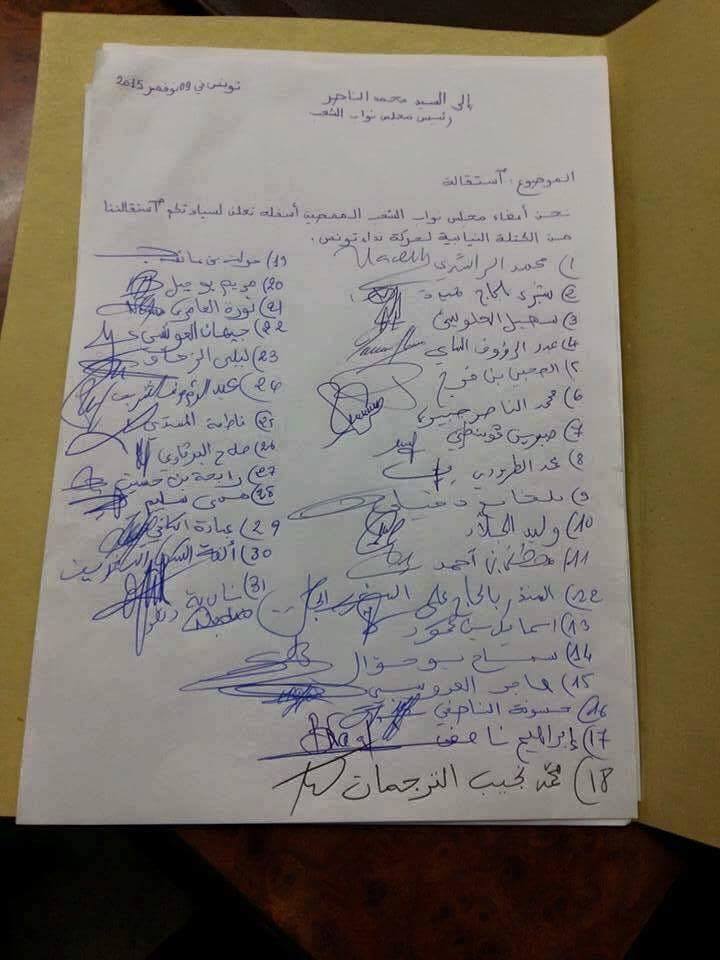 تونس في 09 نوفمبر 2015
إلى السيد محمد الناصر
رئيس مجلس نواب الشعب
الموضوع: استقالة
نحن أعضاء مجلس نواب الشعب الممضين أسفله نعلن لسيادتكم استقالتنا
من الكتلة النيابية لحركة نداء تونس.
1) محمد الراشدي
2) بشرى بلحاج حميدة
3) سهيل العلويني
4) عبد الرؤوف الماي
5) الصحبي بن فرج
6) محمد الناصر جبيرة
7) صبرين قوبنطيني
8) محمد الطرودي
9) بلقاسم دخيلي
10) وليد الجلاد
11) مصطفى بن أحمد
12) المنذر بالحاج علي
13) اسماعيل بن محمود
14) سماح بوحوال
15) هاجر العروسي
16) حسونة الناصفي
17) إبراهيم ناصف
18) محمد نجيب الترجمان
19) خولة بن عائشة
20) مريم بوجبل
21) نورة العامري
22) جيهان العويشي
23) ليلى الزحاف
24) عبد الرؤوف الشريف
25) فاطمة المسدي
26) صلاح البرقاوي
27) رابحة بن حسين
28) هدى سليم
29) عبادة الكافي
30) ألفة السكري الشريف
31) نادية زنقر